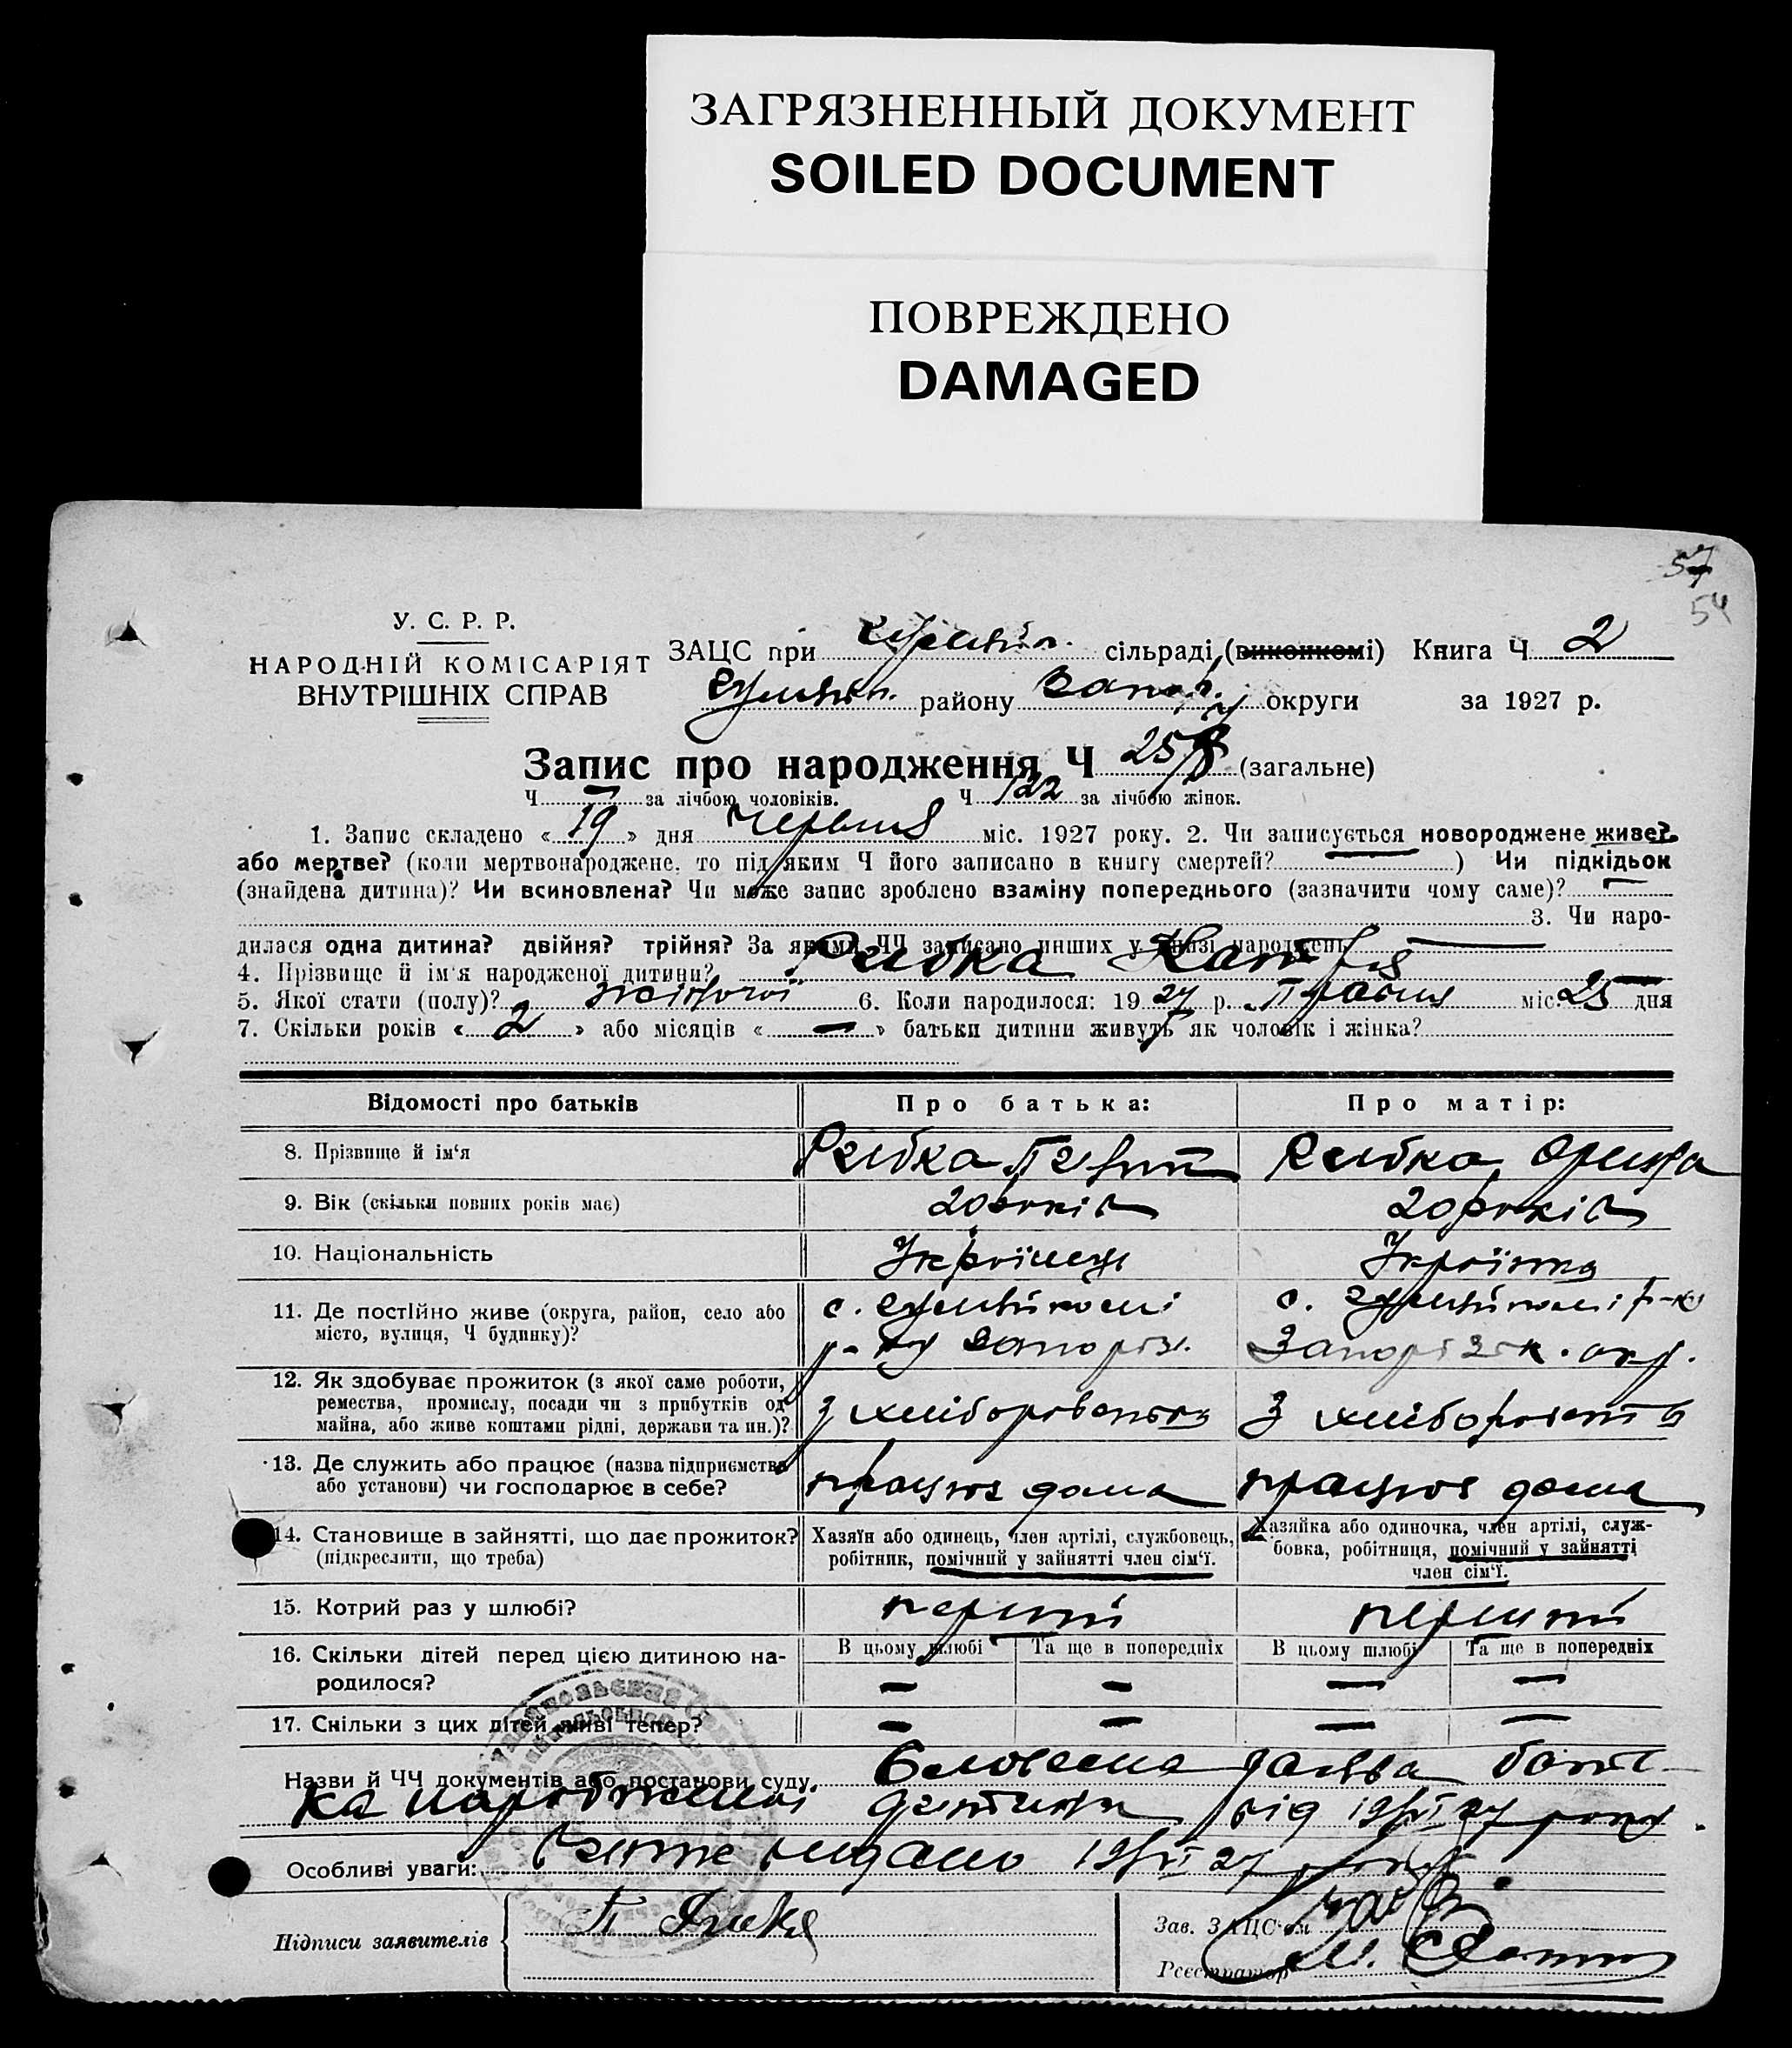 ЗАГРЯЗНЕННЫЙ ДОКУМЕНТ
SOILED DOCUMENT
ПОВРЕЖДЕНО
DAMAGED
57
54
У. С. Р. Р.
НАРОДНІЙ КОМІСАРІЯТ
ВНУТРІШНІХ СПРАВ
ЗАЦС при сільраді (виконкомі) Книга Ч 2
району Запоріз. округи за 1927 р.
Запис про народження Ч 25 (загальне)
Ч — за лічбою чоловіків. Ч 122 за лічбою жінок.
1. Запис складено «19» дня Червня міс. 1927 року. 2. Чи записується новороджене живе?
або мертве? (коли мертвонароджене, то під яким Ч його записано в книгу смертей? —) Чи підкідьок
(знайдена дитина)? Чи всиновлена? Чи може запис зроблено взаміну попереднього (зазначити чому саме)? —
3. Чи наро-
дилася одна дитина? двійня? трійня? За якими ЧЧ записано инших у книзі народжень —
4. Прізвище й ім'я народженої дитини? Рибка Катря
5. Якої стати (полу)? жіночої 6. Коли народилося: 1927 р. Травня міс. 25 дня
7. Скільки років «2» або місяців «—» батьки дитини живуть як чоловік і жінка?
Відомості про батьків Про батька: Про матір:
8. Прізвище й ім'я Рибка Рибка Орина
9. Вік (скільки повних років має) 20 років 20 років
10. Національність Українець Українка
11. Де постійно живе (округа, район, село або с. с.
місто, вулиця, Ч будинку)? р-ну Запоріз. Запорізьк. окр.
12. Як здобуває прожиток (з якої саме роботи,
ремества, промислу, посади чи з прибутків од З хліборобства З хліборобств
майна, або живе коштами рідні, держави та ин.)?
13. Де служить або працює (назва підприємства
або установи) чи господарює в себе? працює дома працює дома
14. Становище в зайнятті, що дає прожиток? Хазяїн або одинець, член артілі, службовець, Хазяйка або одиночка, член артілі, служ-
(підкреслити, що треба) робітник, помічний у зайнятті член сім'ї. бовка, робітниця, помічний у зайнятті
член сім'ї.
15. Котрий раз у шлюбі? перший перший
В цьому шлюбі Та ще в попередніх В цьому шлюбі Та ще в попередніх
16. Скільки дітей перед цією дитиною на-
родилося? — — — —
17. Скільки з цих дітей живі тепер? — — — —
Назви й ЧЧ документів або постанови суду. Словесна заява бать-
ка народженої дитини від 19/VI 27 року.
Особливі уваги: Витяг видано 19/VI 27 року
Підписи заявителів П.
Зав. ЗАЦС'ом
Реєстратор